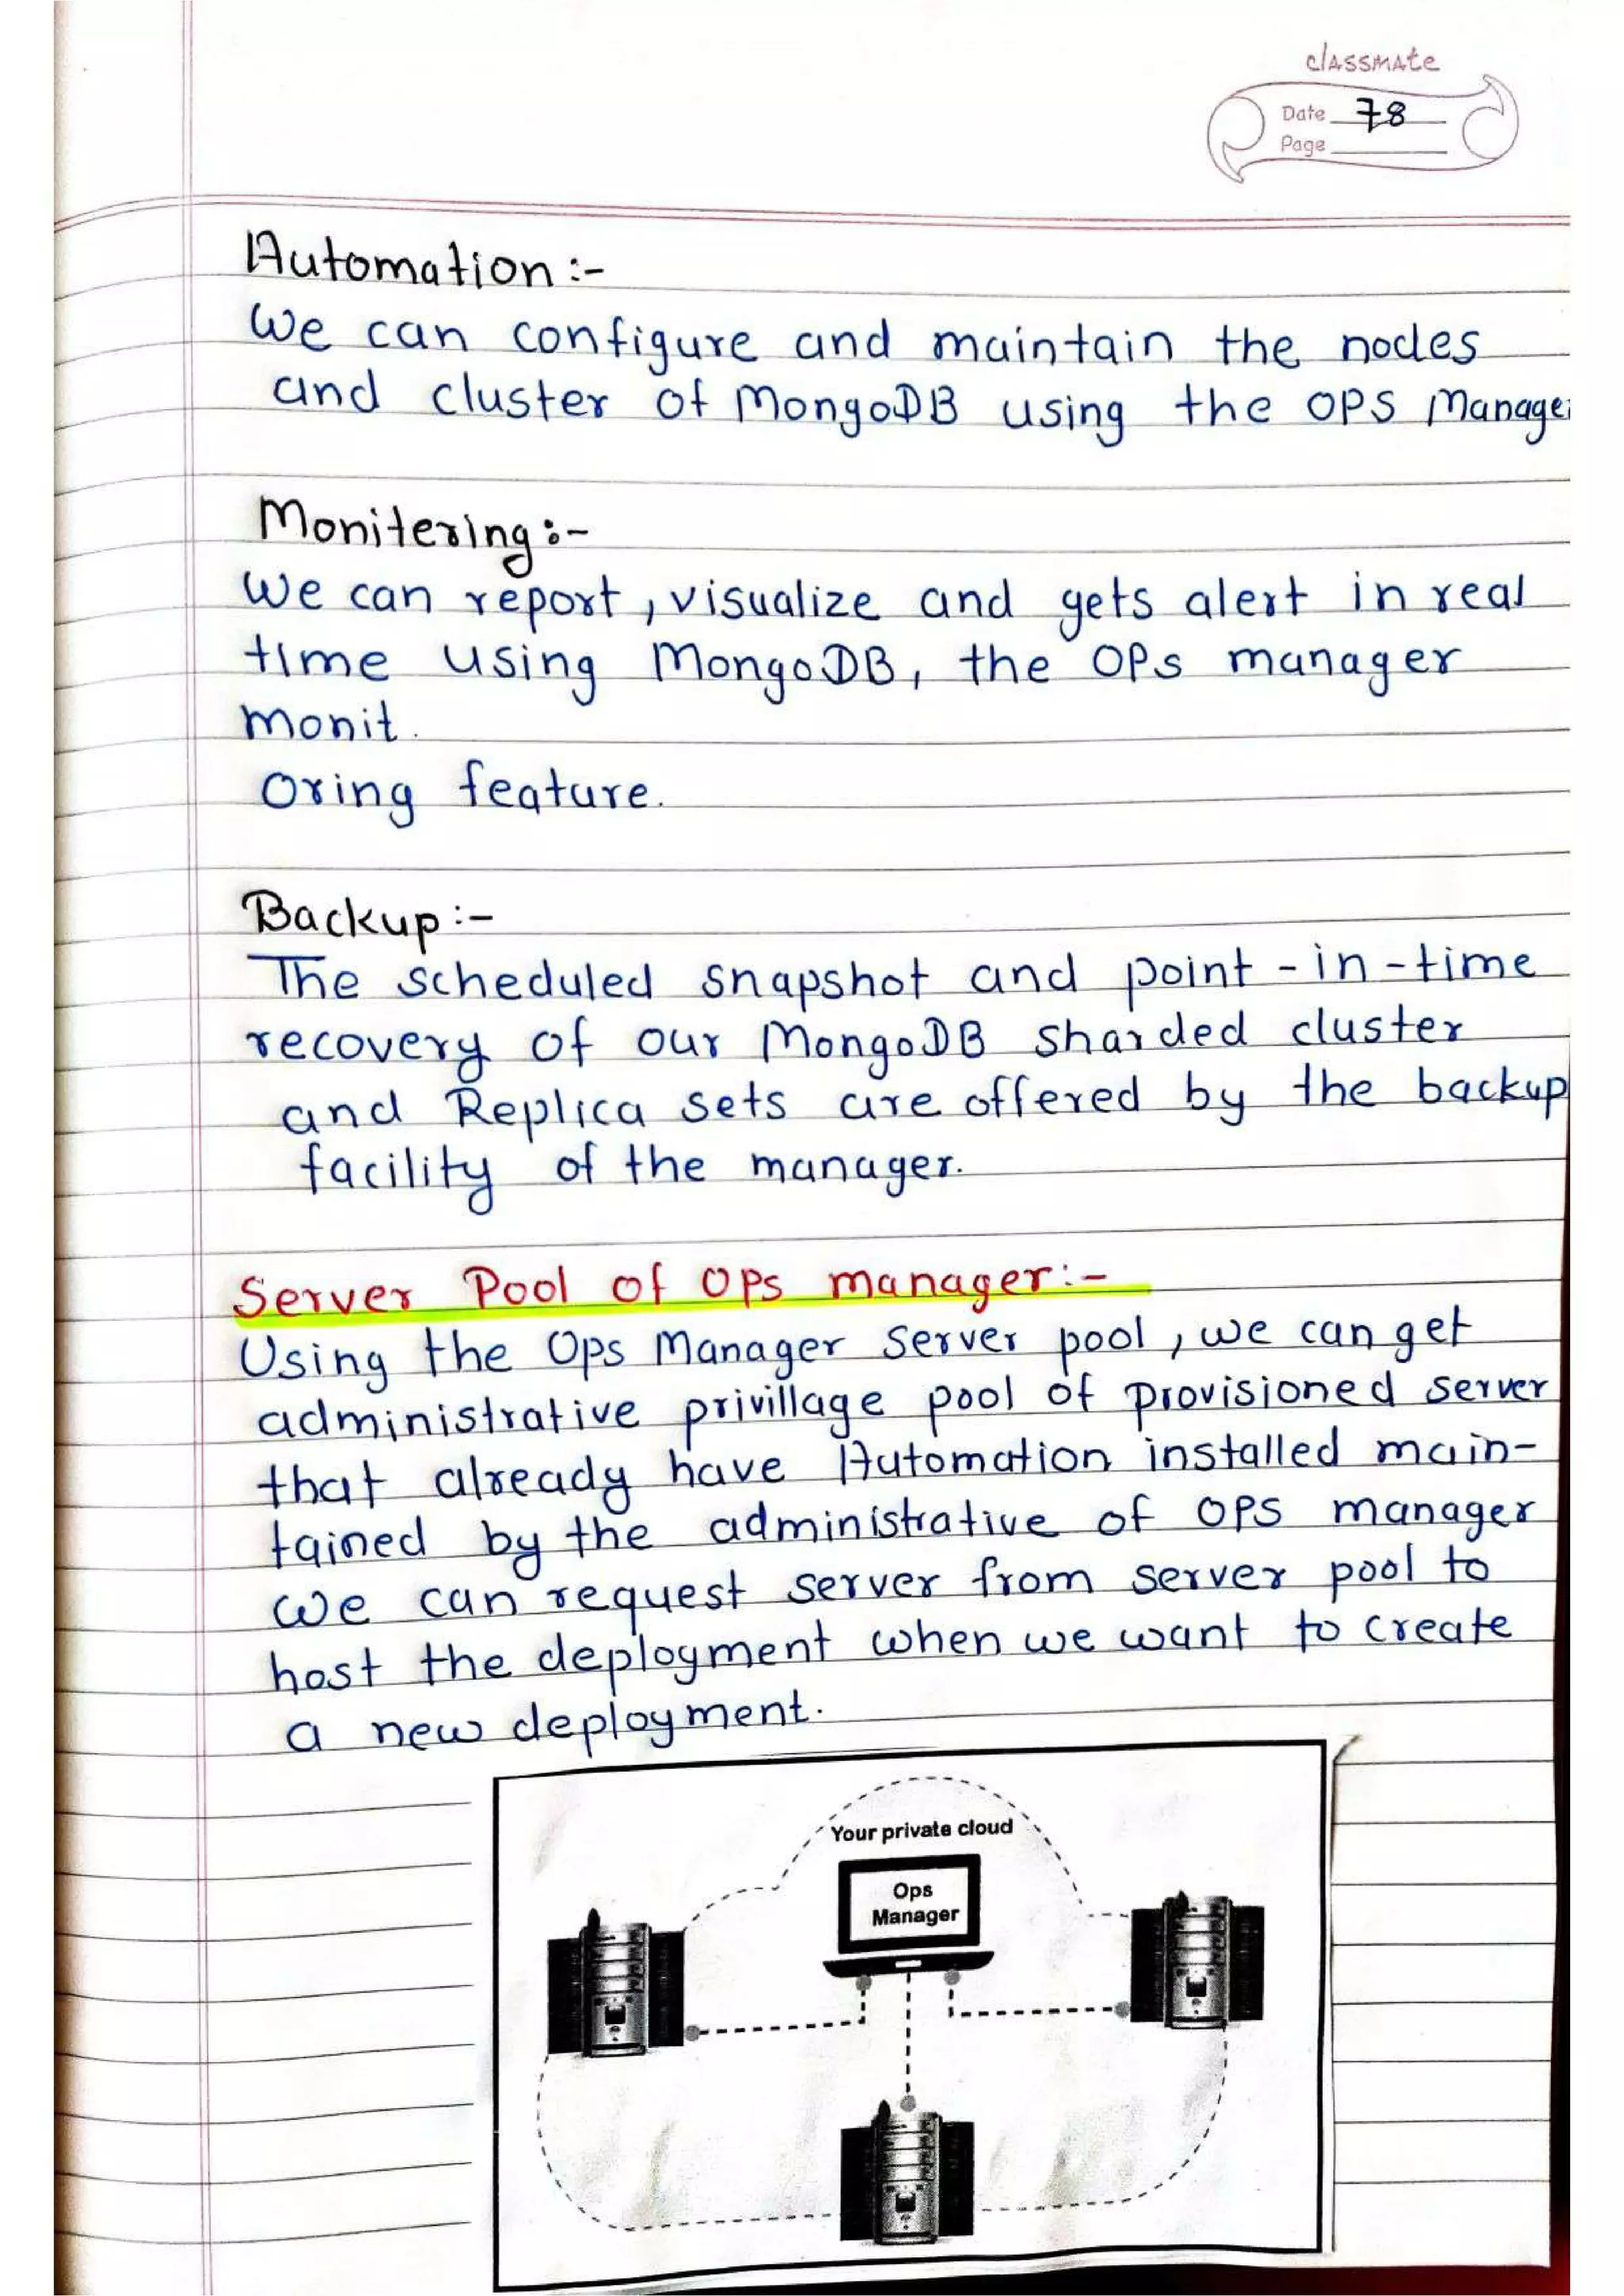 classmate
Date 78
Page
Automation :-
We can configure and maintain the nodes
and cluster of MongoDB using the OPS Manager
Monitering :-
We can report, visualize and gets alert in real
time using MongoDB, the OPs manager
monit.
oring feature.
Backup :-
The scheduled snapshot and point-in-time
recovery of our MongoDB sharded cluster
and Replica sets are offered by the backup
facility of the manager.
Server Pool of Ops manager :-
Using the Ops Manager Server pool, we can get
administrative privillage pool of provisioned server
that already have Automation installed main-
tained by the administrative of OPS manager
we can request server from server pool to
host the deployment when we want to create
a new deployment.
Your private cloud
Ops
Manager